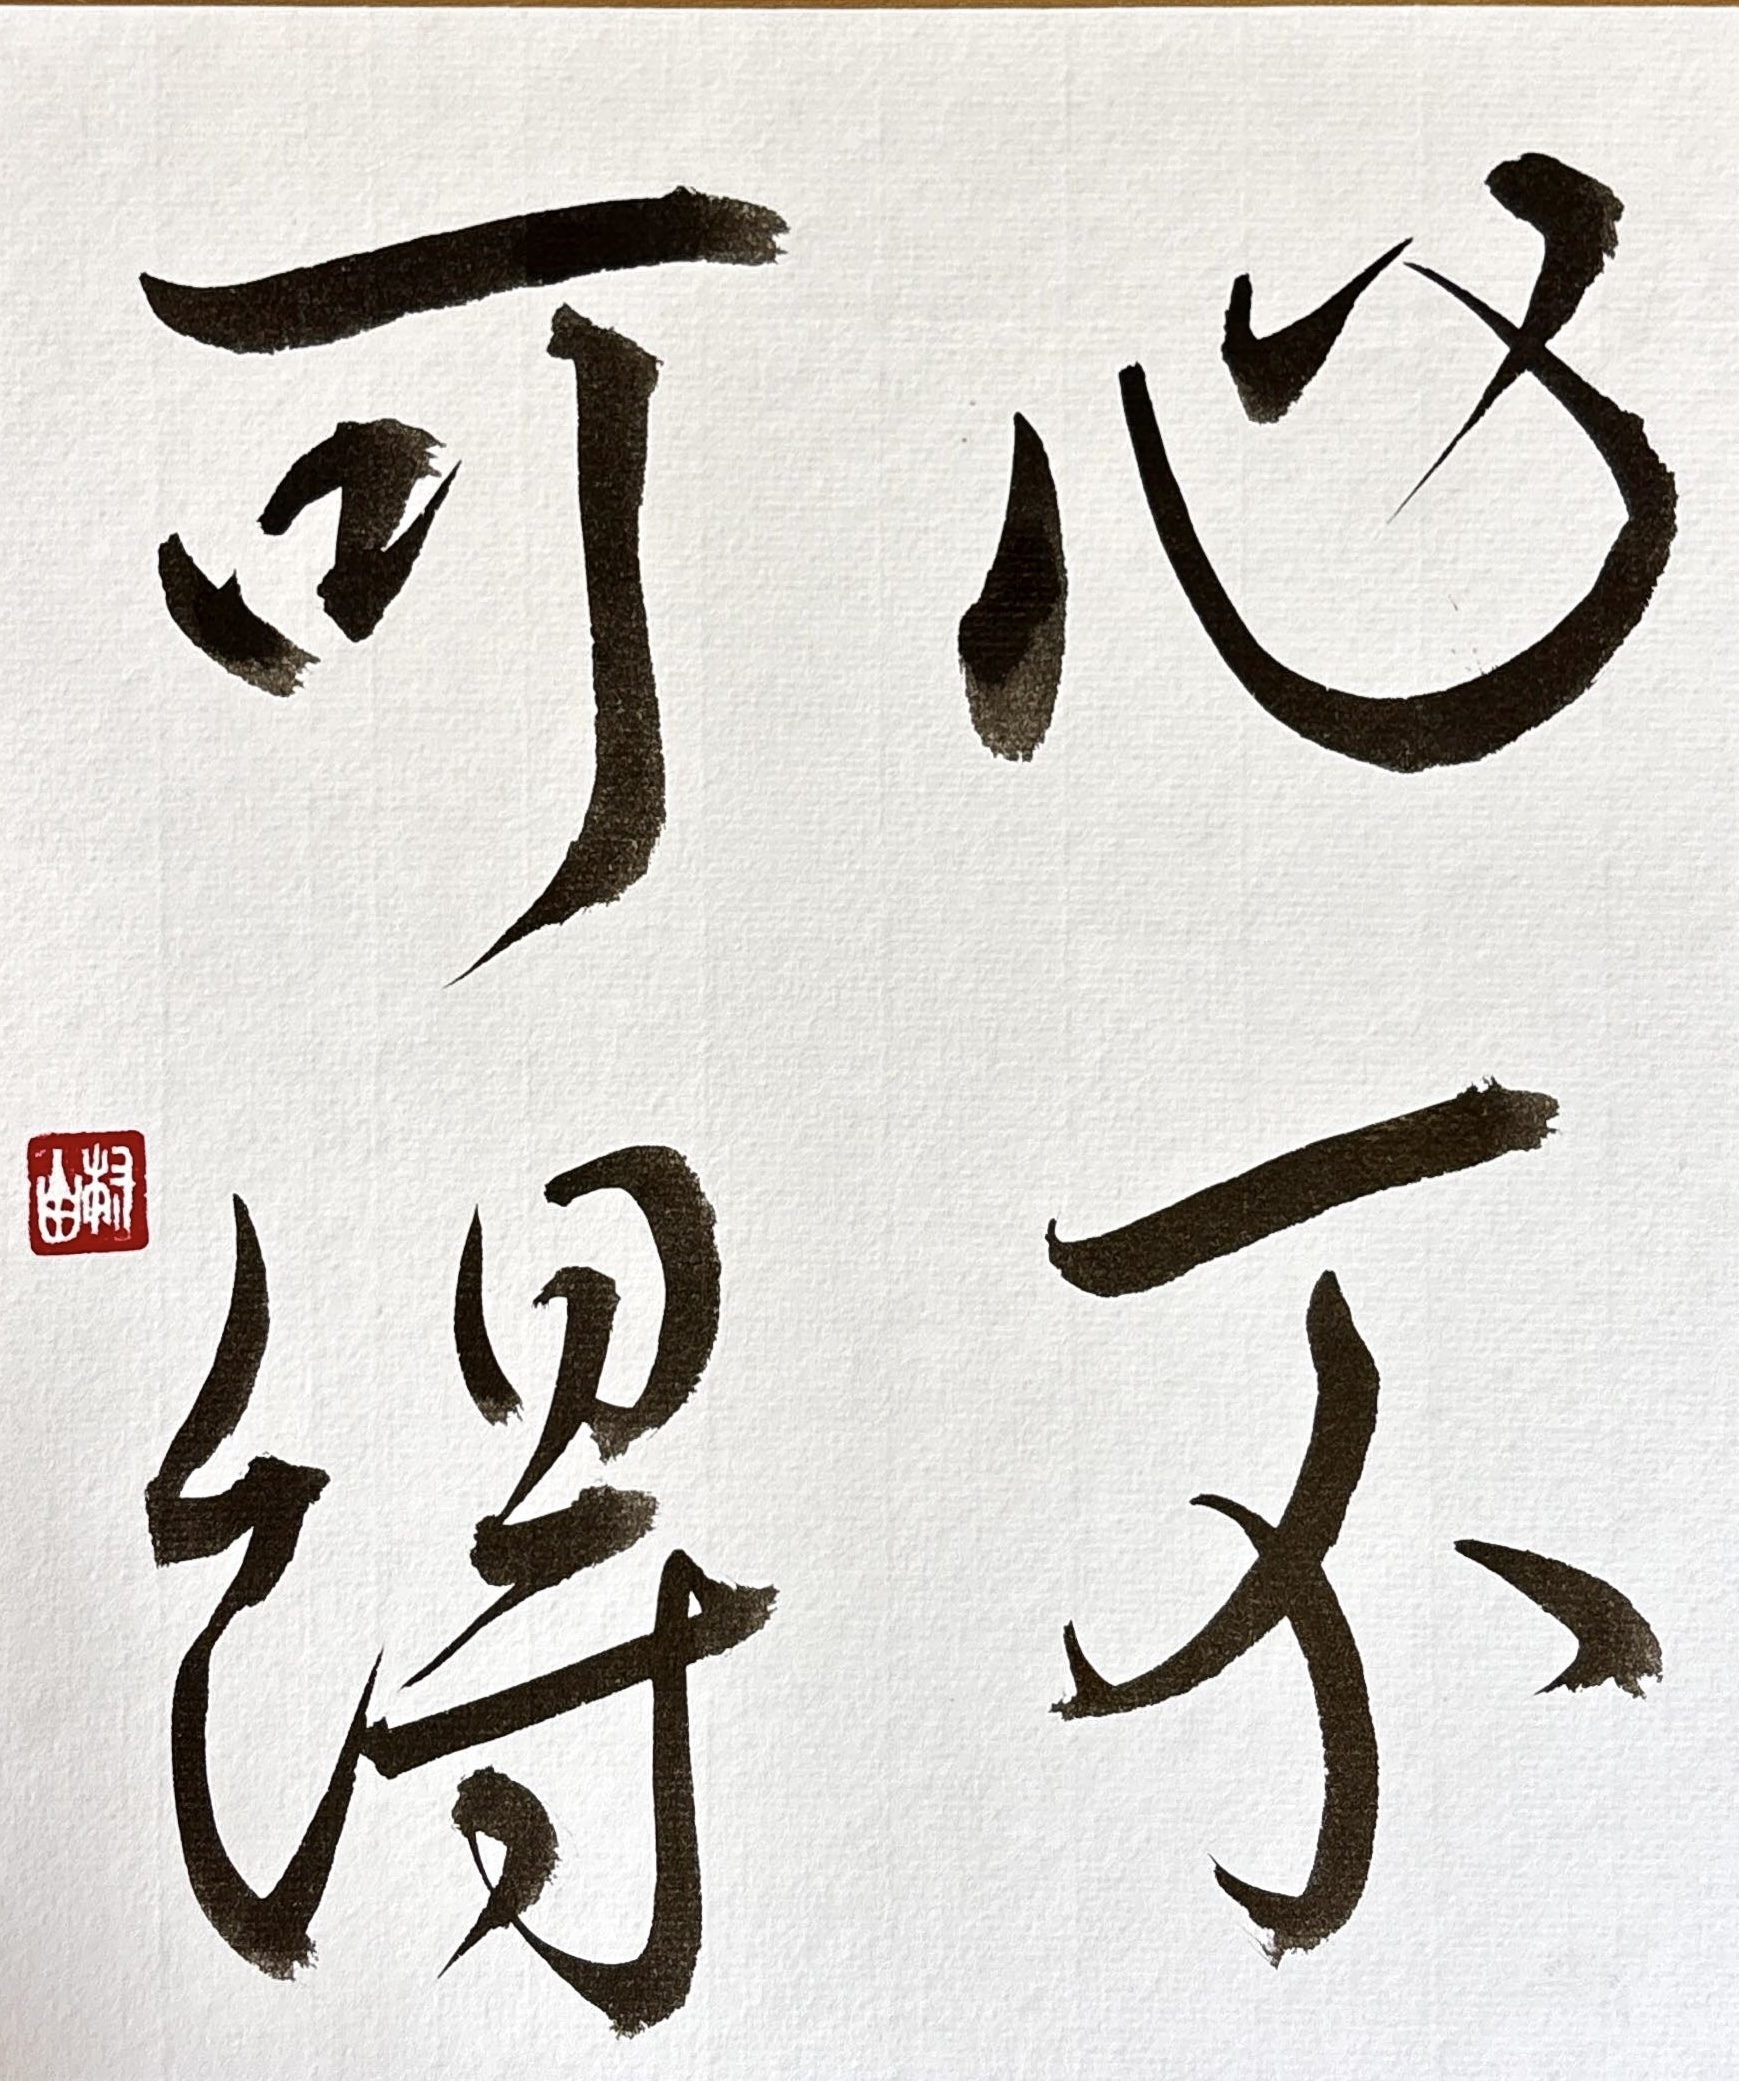 心不
可得